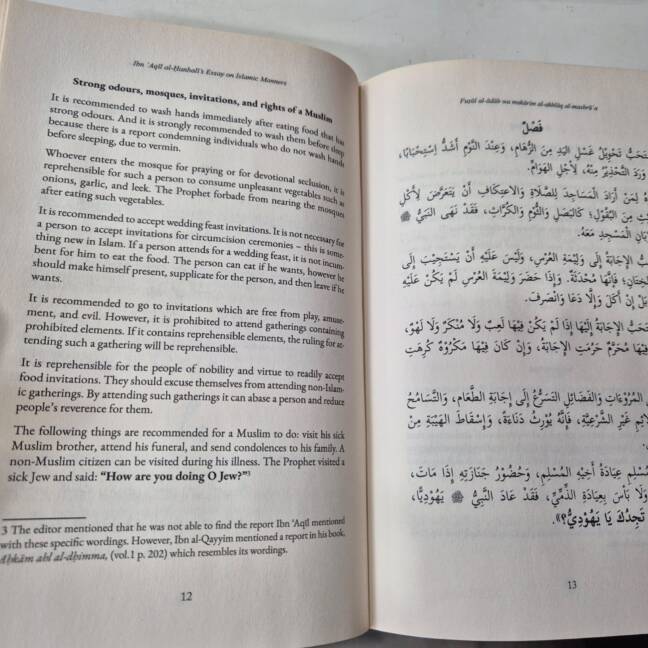 Ibn ʿAqīl al-Ḥanbalī's Essay on Islamic Manners
Strong odours, mosques, invitations, and rights of a Muslim
It is recommended to wash hands immediately after eating food that has
strong odours. And it is strongly recommended to wash them before sleep
because there is a report condemning individuals who do not wash hands
before sleeping, due to vermin.
Whoever enters the mosque for praying or for devotional seclusion, it is
reprehensible for such a person to consume unpleasant vegetables such as
onions, garlic, and leek. The Prophet forbade from nearing the mosques
after eating such vegetables.
It is recommended to accept wedding feast invitations. It is not necessary for
a person to accept invitations for circumcision ceremonies – this is some-
thing new in Islam. If a person attends for a wedding feast, it is not incum-
bent for him to eat the food. The person can eat if he wants, however he
should make himself present, supplicate for the person, and then leave if he
wants.
It is recommended to go to invitations which are free from play, amuse-
ment, and evil. However, it is prohibited to attend gatherings containing
prohibited elements. If it contains reprehensible elements, the ruling for at-
tending such a gathering will be reprehensible.
It is reprehensible for the people of nobility and virtue to readily accept
food invitations. They should excuse themselves from attending non-Islam-
ic gatherings. By attending such gatherings it can abase a person and reduce
people's reverence for them.
The following things are recommended for a Muslim to do: visit his sick
Muslim brother, attend his funeral, and send condolences to his family. A
non-Muslim citizen can be visited during his illness. The Prophet visited a
sick Jew and said: "How are you doing O Jew?"3
3 The editor mentioned that he was not able to find the report Ibn ʿAqīl mentioned
with these specific wordings. However, Ibn al-Qayyim mentioned a report in his book,
aḥkām ahl al-dhimma, (vol.1 p. 202) which resembles its wordings.
12
Fuṣūl al-ādāb wa makārim al-akhlāq al-mashrūʿa
فَصْلٌ
تَحَبُّ تَحْوِيلُ غَسْلِ الْيَدِ مِنَ الزُّهَامِ، وَعِنْدَ النَّوْمِ أَشَدُّ اسْتِحْبَابًا،
وَرَدَ التَّحْذِيرُ مِنْهُ، لِأَجْلِ الْهَوَامِّ.
لِمَنْ أَرَادَ الْمَسَاجِدَ لِلصَّلَاةِ وَالِاعْتِكَافِ أَنْ يَتَعَرَّضَ لِأَكْلِ
مِنَ الْبُقُولِ؛ كَالْبَصَلِ وَالثُّومِ وَالْكُرَّاثِ، فَقَدْ نَهَى النَّبِيُّ ﷺ
الْمَسْجِدِ مَعَهُ.
الْإِجَابَةُ إِلَى وَلِيمَةِ الْعُرْسِ، وَلَيْسَ عَلَيْهِ أَنْ يَسْتَجِيبَ إِلَى
الْخِتَانِ؛ فَإِنَّهَا مُحْدَثَةٌ. وَإِذَا حَضَرَ وَلِيمَةَ الْعُرْسِ لَمْ يَكُنْ عَلَيْهِ
بَلْ إِنْ أَكَلَ وَإِلَّا دَعَا وَانْصَرَفَ.
تَحَبُّ الْإِجَابَةُ إِلَيْهَا إِذَا لَمْ يَكُنْ فِيهَا لَعِبٌ وَلَا مُنْكَرٌ وَلَا لَهْوٌ،
فِيهَا مُحَرَّمٌ حَرُمَتِ الْإِجَابَةُ، وَإِنْ كَانَ فِيهَا مَكْرُوهٌ كُرِهَتْ
الْمُرُوءَاتِ وَالْفَضَائِلِ التَّسَرُّعُ إِلَى إِجَابَةِ الطَّعَامِ، وَالتَّسَامُحُ
غَيْرِ الشَّرْعِيَّةِ، فَإِنَّهُ يُوْرِثُ دَنَاءَةً، وَإِسْقَاطَ الْهَيْبَةِ مِنْ
مُسْلِمِ عِيَادَةُ أَخِيْهِ الْمُسْلِمِ، وَحُضُوْرُ جَنَازَتِهِ إِذَا مَاتَ،
وَلَا بَأْسَ بِعِيَادَةِ الذِّمِّيِّ، فَقَدْ عَادَ النَّبِيُّ ﷺ يَهُوْدِيًّا،
تَجِدُكَ يَا يَهُوْدِيُّ؟».
13